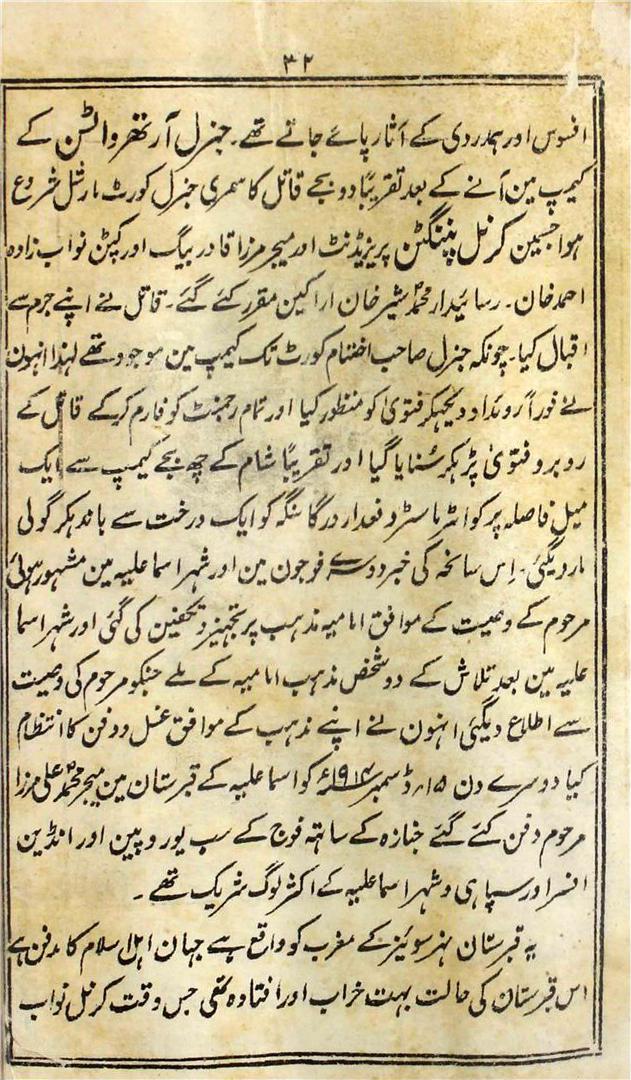 ۳۲
افسوس اور ہمدردی کے آثار پائے جاتے تھے۔ جنرل آرتھر واٹسن کے
کیمپ مین آنے کے بعد تقریباً دو بجے قاتل کا سمری جنرل کورٹ مارشل شروع
ہوا جسین کرنل پننگٹن پریزیڈنٹ اور میجر مرزا قادر بیگ اور کپٹن نواب زادہ
احمد خان۔ رسائیدار محمدؐ شیر خان اراکین مقرر کئے گئے۔ قاتل نے اپنے جرم سے
اقبال کیا۔ چونکہ جنرل صاحب اختتام کورٹ تک کیمپ مین موجود تھے لہذا انہون
نے فوراً روئداد دیکہکر فتویٰ کو منظور کیا اور تمام رجمنٹ کو فارم کرکے قاتل کے
روبرو فتویٰ پڑہکر سُنایا گیا اور تقریباً شام کے چھ بجے کیمپ سے ایک
میل فاصلہ پر کوارٹر ماسٹر دفعدار درگا سنگہ کو ایک درخت سے باندہکر گولی
ماردیگئی۔ اِس سانحہ کی خبر دوسرے فوجون مین اور شہر اسماعلیہ مین مشہور ہوئی
مرحوم کے وصیت کے موافق امامیہ مذہب پر تجہیز و تکفین کی گئی اور شہر اسما
علیہ مین بعد تلاش کے دو شخص مذہب امامیہ کے ملے جنکو مرحوم کی وصیت
سے اطلاع دیگئی انہون نے اپنے مذہب کے موافق غسل و دفن کا انتظام
کیا دوسرے دن ۱۵؍ ڈسمبر ۱۹۱۴ء کو اسماعلیہ کے قبرستان مین میجر محمدؐ علی مرزا
مرحوم دفن کئے گئے جنازہ کے ساتہ فوج کے سب یوروپین اور انڈین
افسر اور سپاہی و شہر اسماعلیہ کے اکثر لوگ شریک تھے۔
یہ قبرستان نہر سوئیز کے مغرب کو واقع ہے جہان اہل اسلام کا مدفن ہے
اس قبرستان کی حالت بہت خراب اور افتادہ تھی جس وقت کرنل نواب